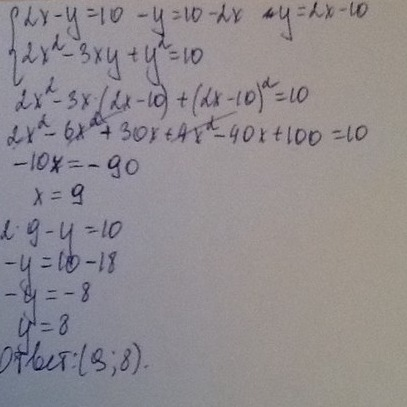 {2x-y=10 -y=10-2x y=2x-10
{2x²-3xy+y²=10
2x²-3x·(2x-10)+(2x-10)²=10
2x²-6x²+30x+4x²-40x+100=10
-10x=-90
x=9
2·9-y=10
-y=10-18
-y=-8
y=8
Ответ:(9;8).